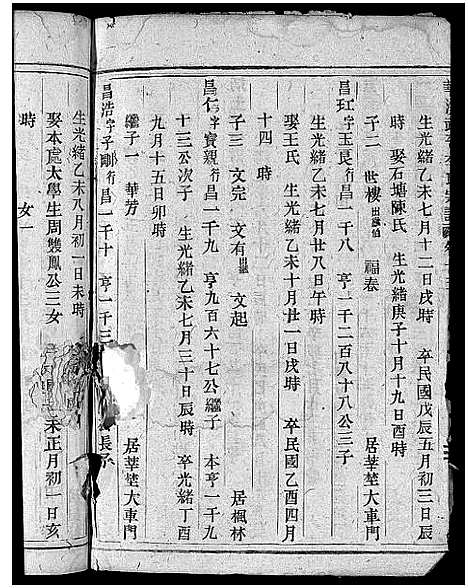 生光緒乙未五月十二日戌時　卒民國戊辰五月初三日辰
時　娶石塘陳氏　生光緒庚子十月十九日酉時
子二　世樓出嗣　福春　居莘塍大車門
昌玒字玉艮行昌一千八　亨一千二百八十八公三子
生光緒乙未七月廿八日午時
娶王氏　生光緒乙未十月廿一日戌時　卒民國乙酉四月
十四　時
子三　文完　文有　文起　居楓林
昌仁字寶親行昌一千九　亨九百六十七公繼子　本亨一千九
十三公次子　生光緒乙未七月三十日辰時　卒光緒丁酉
九月十五日卯時
繼子一　華芳　居莘塍大車門
昌浩字子剛行昌一千十　亨一千三　長子
生光緒乙未八月初一日未時
娶本處大學生周雙鳳公三女　未正月初一日亥
時　女一